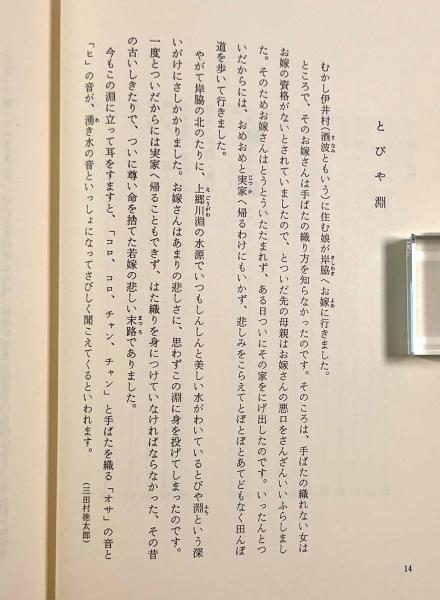 とびや淵
むかし伊井村(酒波ともいう)に住む娘が岸脇へお嫁に行きました。
ところで、そのお嫁さんは手ばたの織り方を知らなかったのです。そのころは、手ばたの織れない女は
お嫁の資格がないとされていましたので、とついだ先の母親はお嫁さんの悪口をさんざんいいふらしまし
た。そのためお嫁さんはとうとういたたまれず、ある日ついにその家をにげ出したのです。いったんとつ
いだからには、おめおめと実家へ帰るわけにもいかず、悲しみをこらえてとぼとぼとあてどもなく田んぼ
道を歩いて行きました。
やがて岸脇の北のたりに、上郷川淵の水源でいつもしんしんと美しい水がわいているとびや淵という深
いがけにさしかかりました。お嫁さんはあまりの悲しさに、思わずこの淵に身を投げてしまったのです。
一度とついだからには実家へ帰ることもできず、はた織りを身につけていなければならなかった、その昔
の古いしきたりで、ついに尊い命を捨てた若嫁の悲しい末路でありました。
今もこの淵に立って耳をすますと、「コロ、コロ、チャン、チャン」と手ばたを織る「オサ」の音と
「ヒ」の音が、湧き水の音といっしょになってさびしく聞こえてくるといわれます。
(三田村徳太郎)
14